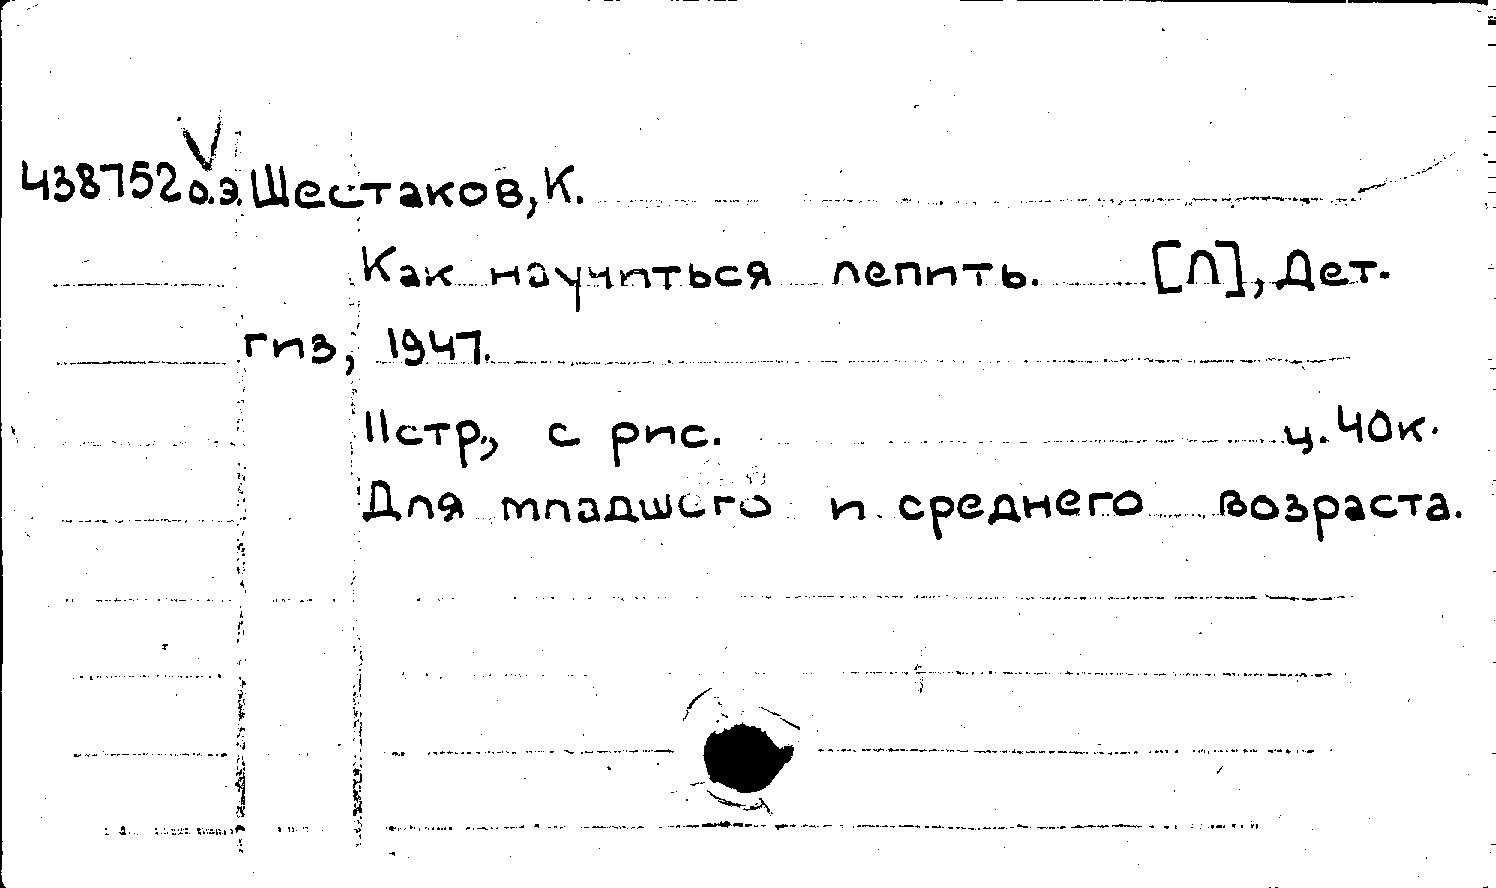 438752 о.э. Шестаков, К.
Как научиться лепить. [Л], Дет-
гиз, 1947.
11 стр., с рис. ц. 40 к.
Для младшего и среднего возраста.